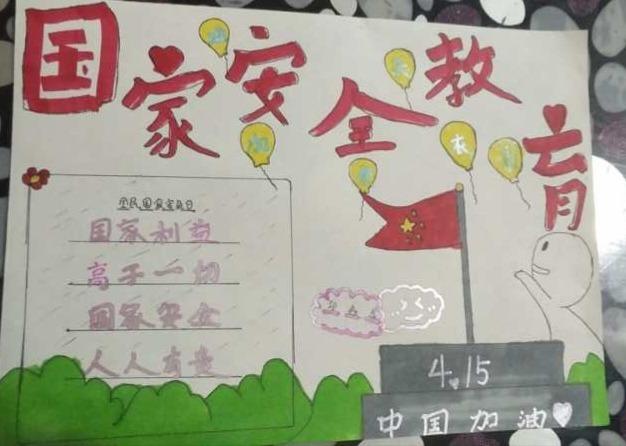 国家安全教育
加
全民国家安全日
国家利益
高于一切
国家安全
人人有责
4.15
中国加油